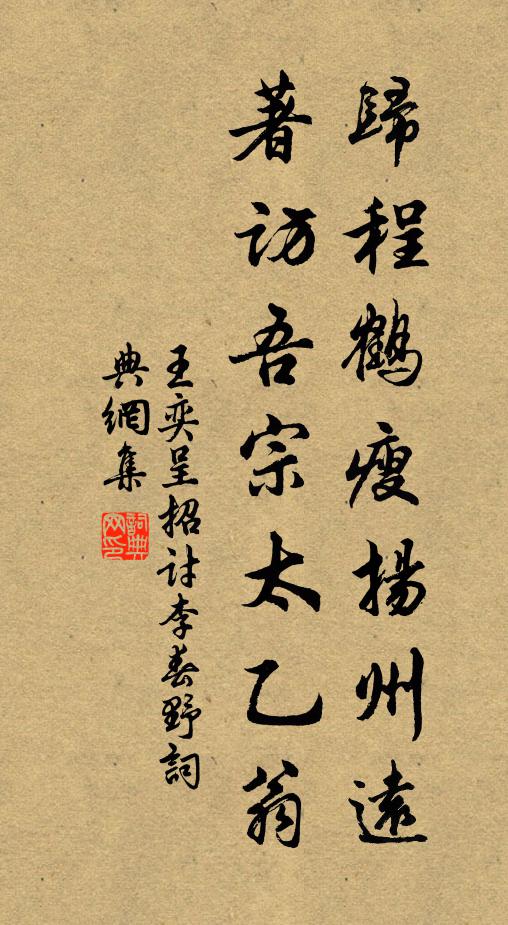 歸程鶴瘦揚州遠
著訪吾宗太乙翁
王奕呈招討李春野詞
典網集
詞典網印